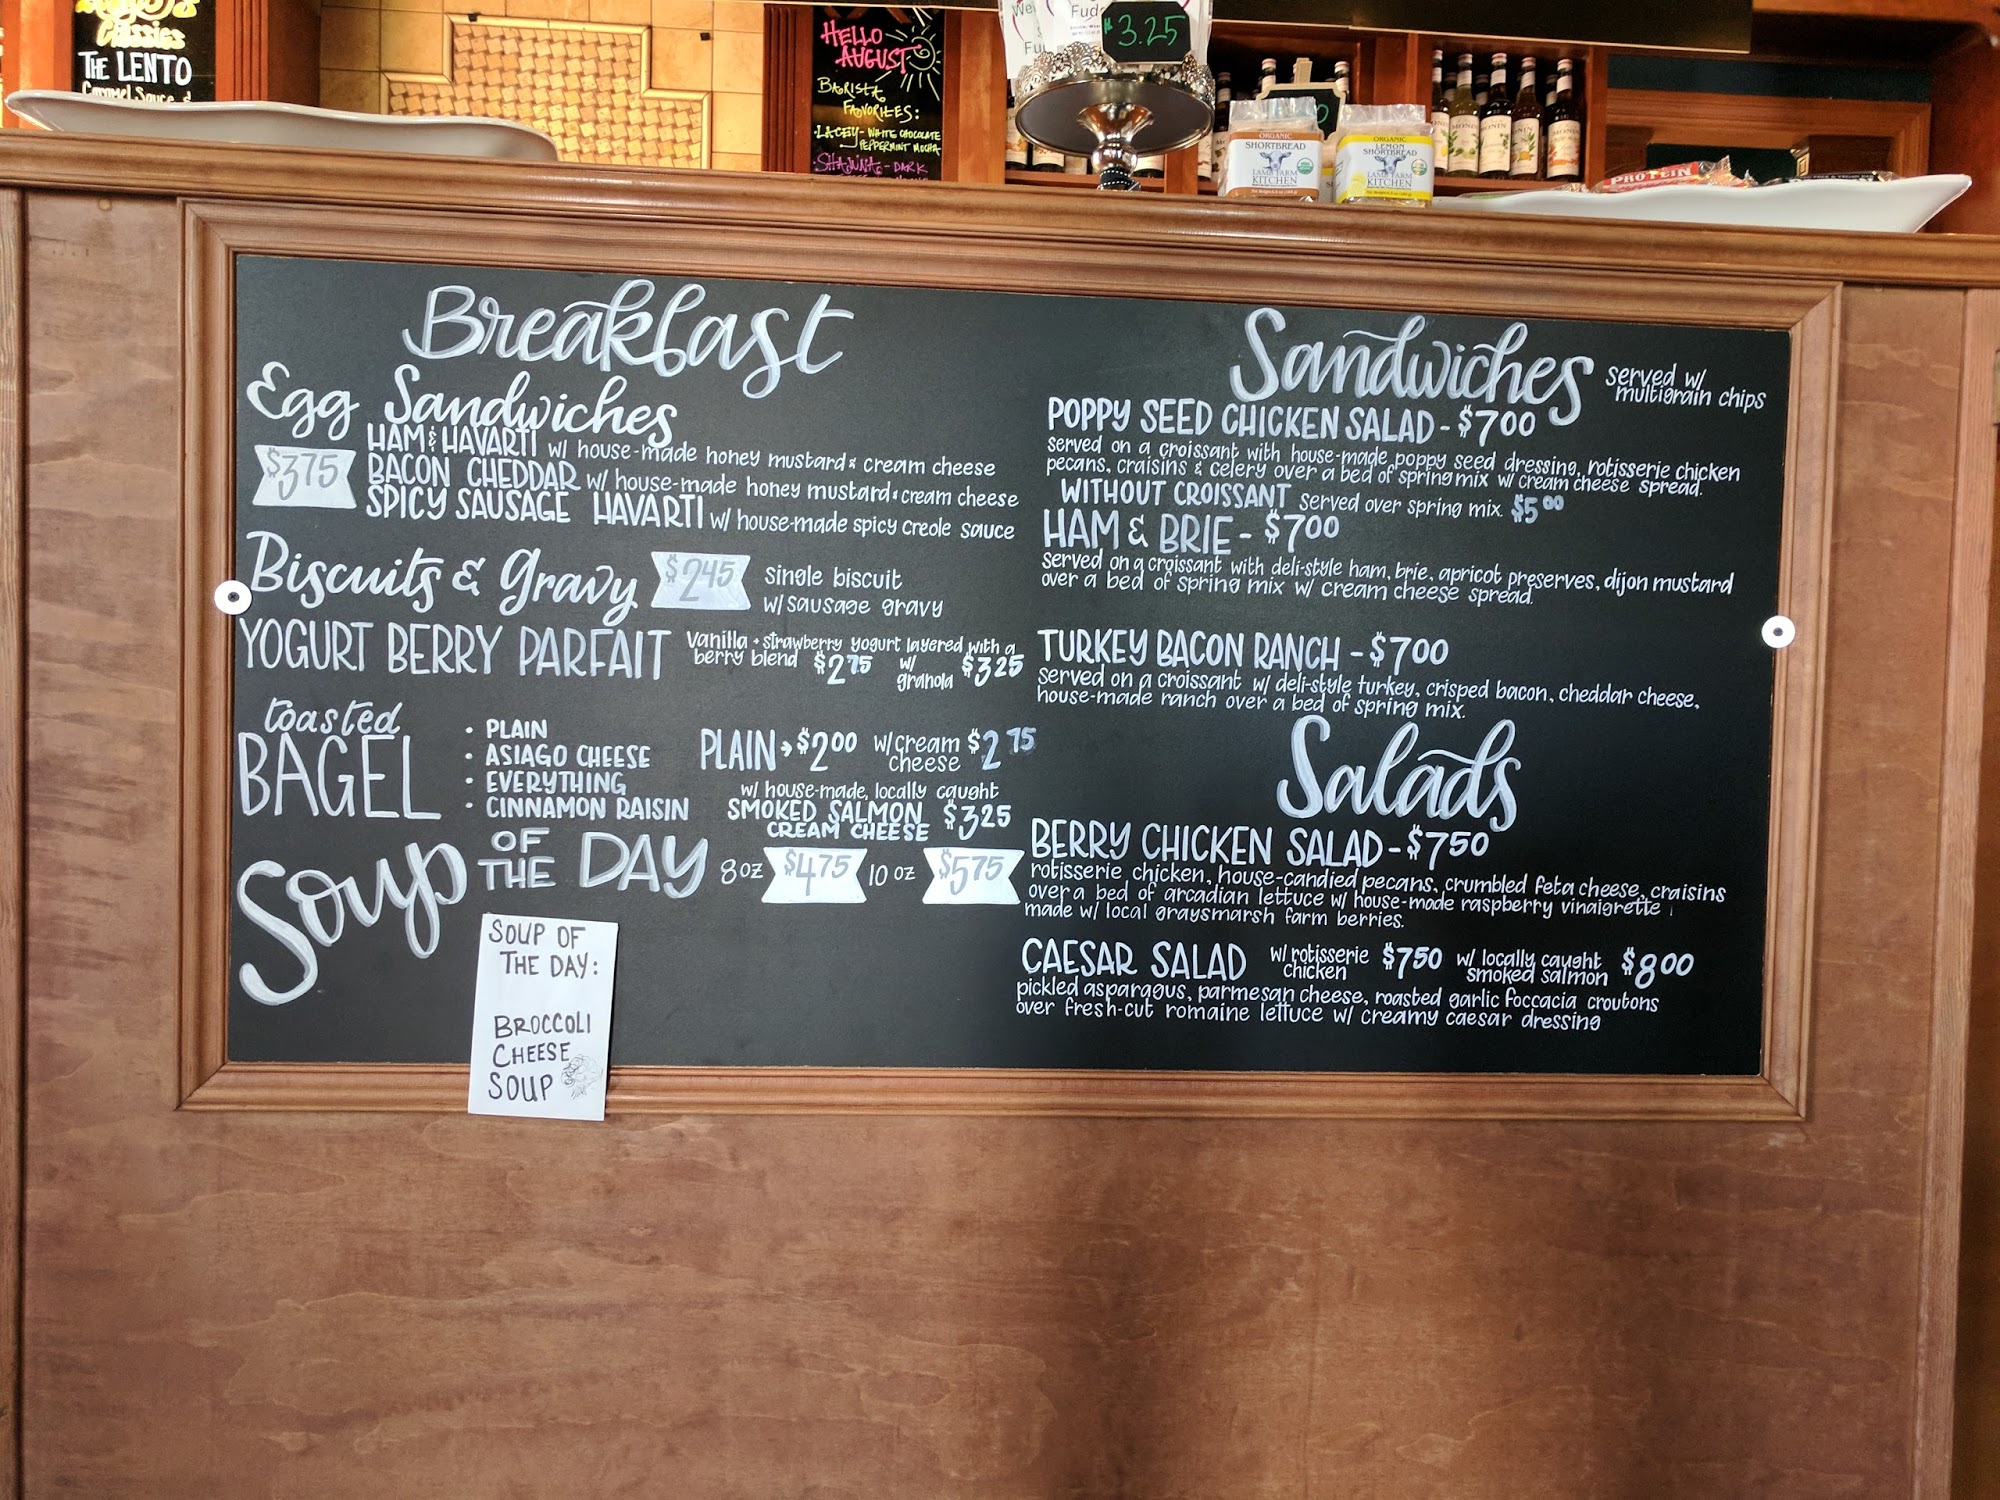 Classics
THE LENTO
Caramel Sauce &
HELLO
AUGUST
BARISTA
FAVORITES:
·LACEY- WHITE CHOCOLATE
PEPPERMINT MOCHA
·SHAWNA- DARK
Fudg
$3.25
ORGANIC
SHORTBREAD
LAMB FARM
KITCHEN
ORGANIC
LEMON
SHORTBREAD
LAMB FARM
KITCHEN
MONIN
PROTEIN
Breakfast
Egg Sandwiches
$3.75
HAM & HAVARTI w/ house-made honey mustard & cream cheese
BACON CHEDDAR w/ house-made honey mustard & cream cheese
SPICY SAUSAGE HAVARTI w/ house-made spicy creole sauce
Biscuits & Gravy $2.45 single biscuit
w/ sausage gravy
YOGURT BERRY PARFAIT vanilla + strawberry yogurt layered with a
berry blend $2.75 w/ granola $3.25
toasted
BAGEL
· PLAIN
· ASIAGO CHEESE
· EVERYTHING
· CINNAMON RAISIN
PLAIN → $2.00 w/ cream cheese $2.75
w/ house-made, locally caught
SMOKED SALMON
CREAM CHEESE $3.25
Soup OF THE DAY 8 oz $4.75 10 oz $5.75
SOUP OF
THE DAY:
BROCCOLI
CHEESE
SOUP
Sandwiches served w/
multigrain chips
POPPY SEED CHICKEN SALAD - $7.00
served on a croissant with house-made poppy seed dressing, rotisserie chicken
pecans, craisins & celery over a bed of spring mix w/ cream cheese spread.
WITHOUT CROISSANT served over spring mix. $5.00
HAM & BRIE - $7.00
served on a croissant with deli-style ham, brie, apricot preserves, dijon mustard
over a bed of spring mix w/ cream cheese spread.
TURKEY BACON RANCH - $7.00
served on a croissant w/ deli-style turkey, crisped bacon, cheddar cheese,
house-made ranch over a bed of spring mix.
Salads
BERRY CHICKEN SALAD - $7.50
rotisserie chicken, house-candied pecans, crumbled feta cheese, craisins
over a bed of arcadian lettuce w/ house-made raspberry vinaigrette
made w/ local graysmarsh farm berries.
CAESAR SALAD w/ rotisserie chicken $7.50 w/ locally caught smoked salmon $8.00
pickled asparagus, parmesan cheese, roasted garlic foccacia croutons
over fresh-cut romaine lettuce w/ creamy caesar dressing